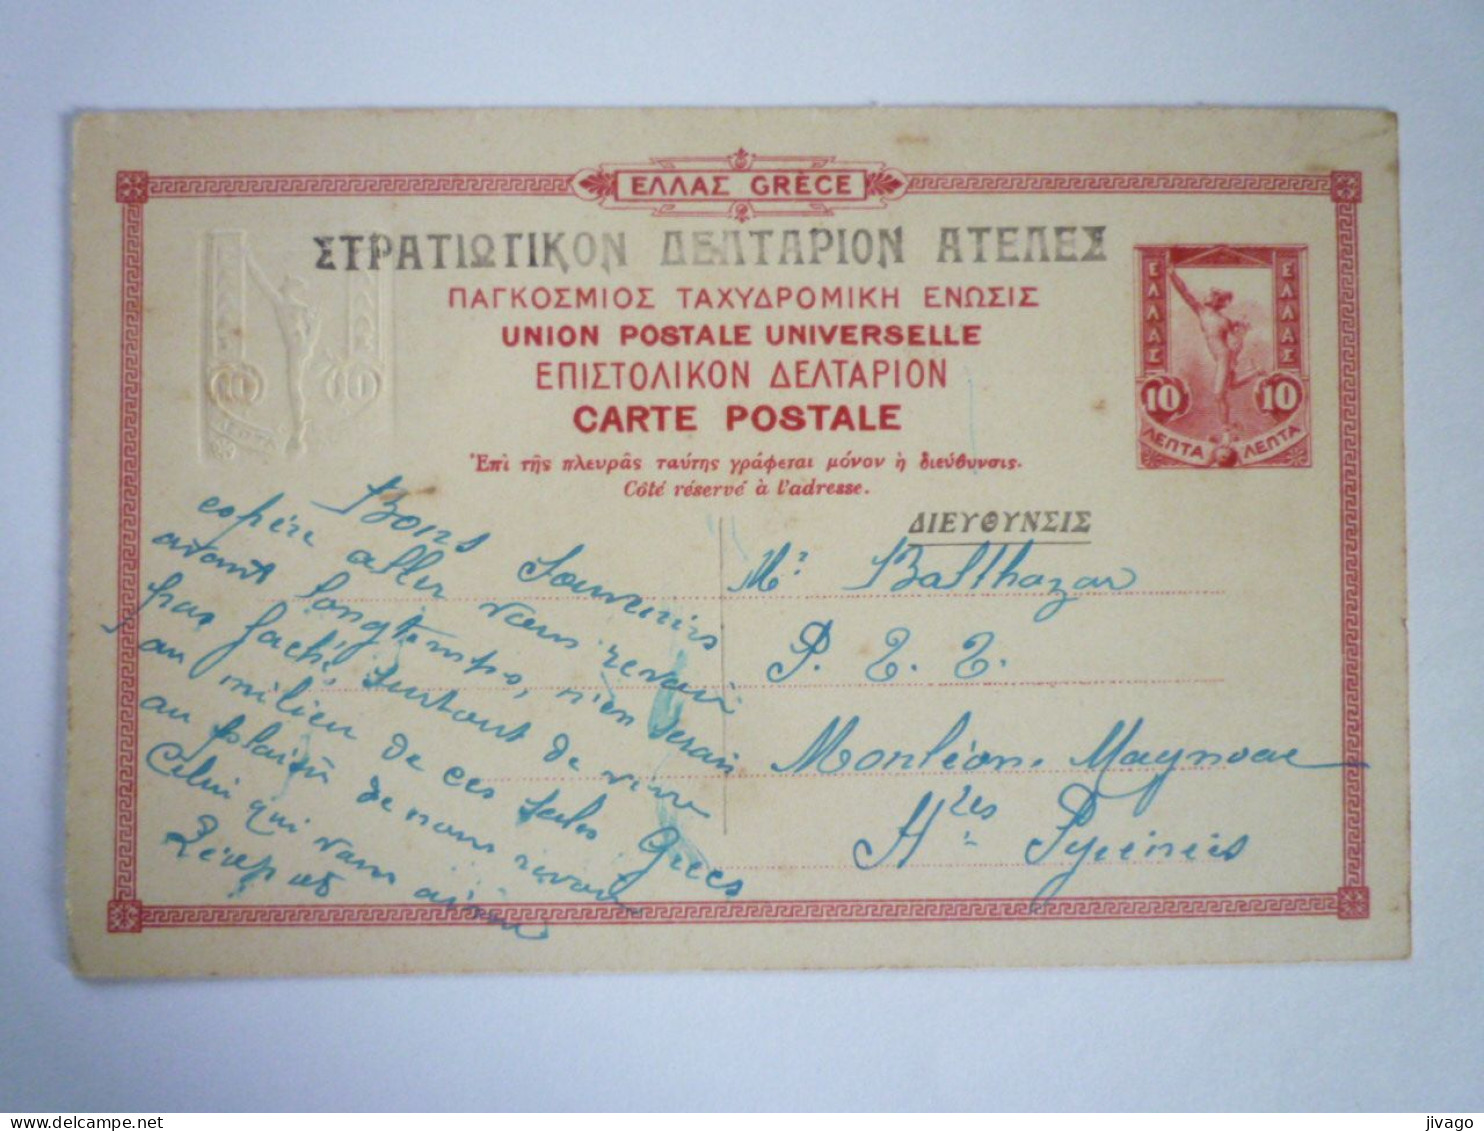 ΕΛΛΑΣ GRÈCE
ΣΤΡΑΤΙΩΤΙΚΟΝ ΔΕΛΤΑΡΙΟΝ ΑΤΕΛΕΣ
ΠΑΓΚΟΣΜΙΟΣ ΤΑΧΥΔΡΟΜΙΚΗ ΕΝΩΣΙΣ
UNION POSTALE UNIVERSELLE
ΕΠΙΣΤΟΛΙΚΟΝ ΔΕΛΤΑΡΙΟΝ
CARTE POSTALE
Ἐπὶ τῆς πλευρᾶς ταύτης γράφεται μόνον ἡ διεύθυνσις.
Côté réservé à l'adresse.
ΕΛΛΑΣ
ΕΛΛΑΣ
10 10
ΛΕΠΤΑ ΛΕΠΤΑ
10 10
ΛΕΠΤΑ
Bons Souvenirs
espère aller vous revoir
avant longtemps, n'en serai
pas faché, surtout de vivre
au milieu de ces sales Grecs
au plaisir de nous revoir
Celui qui vous aime
ΔΙΕΥΘΥΝΣΙΣ
Mr Balthazar
P. T. T.
Monléon-Magnoac
Htes Pyrénées
jivago